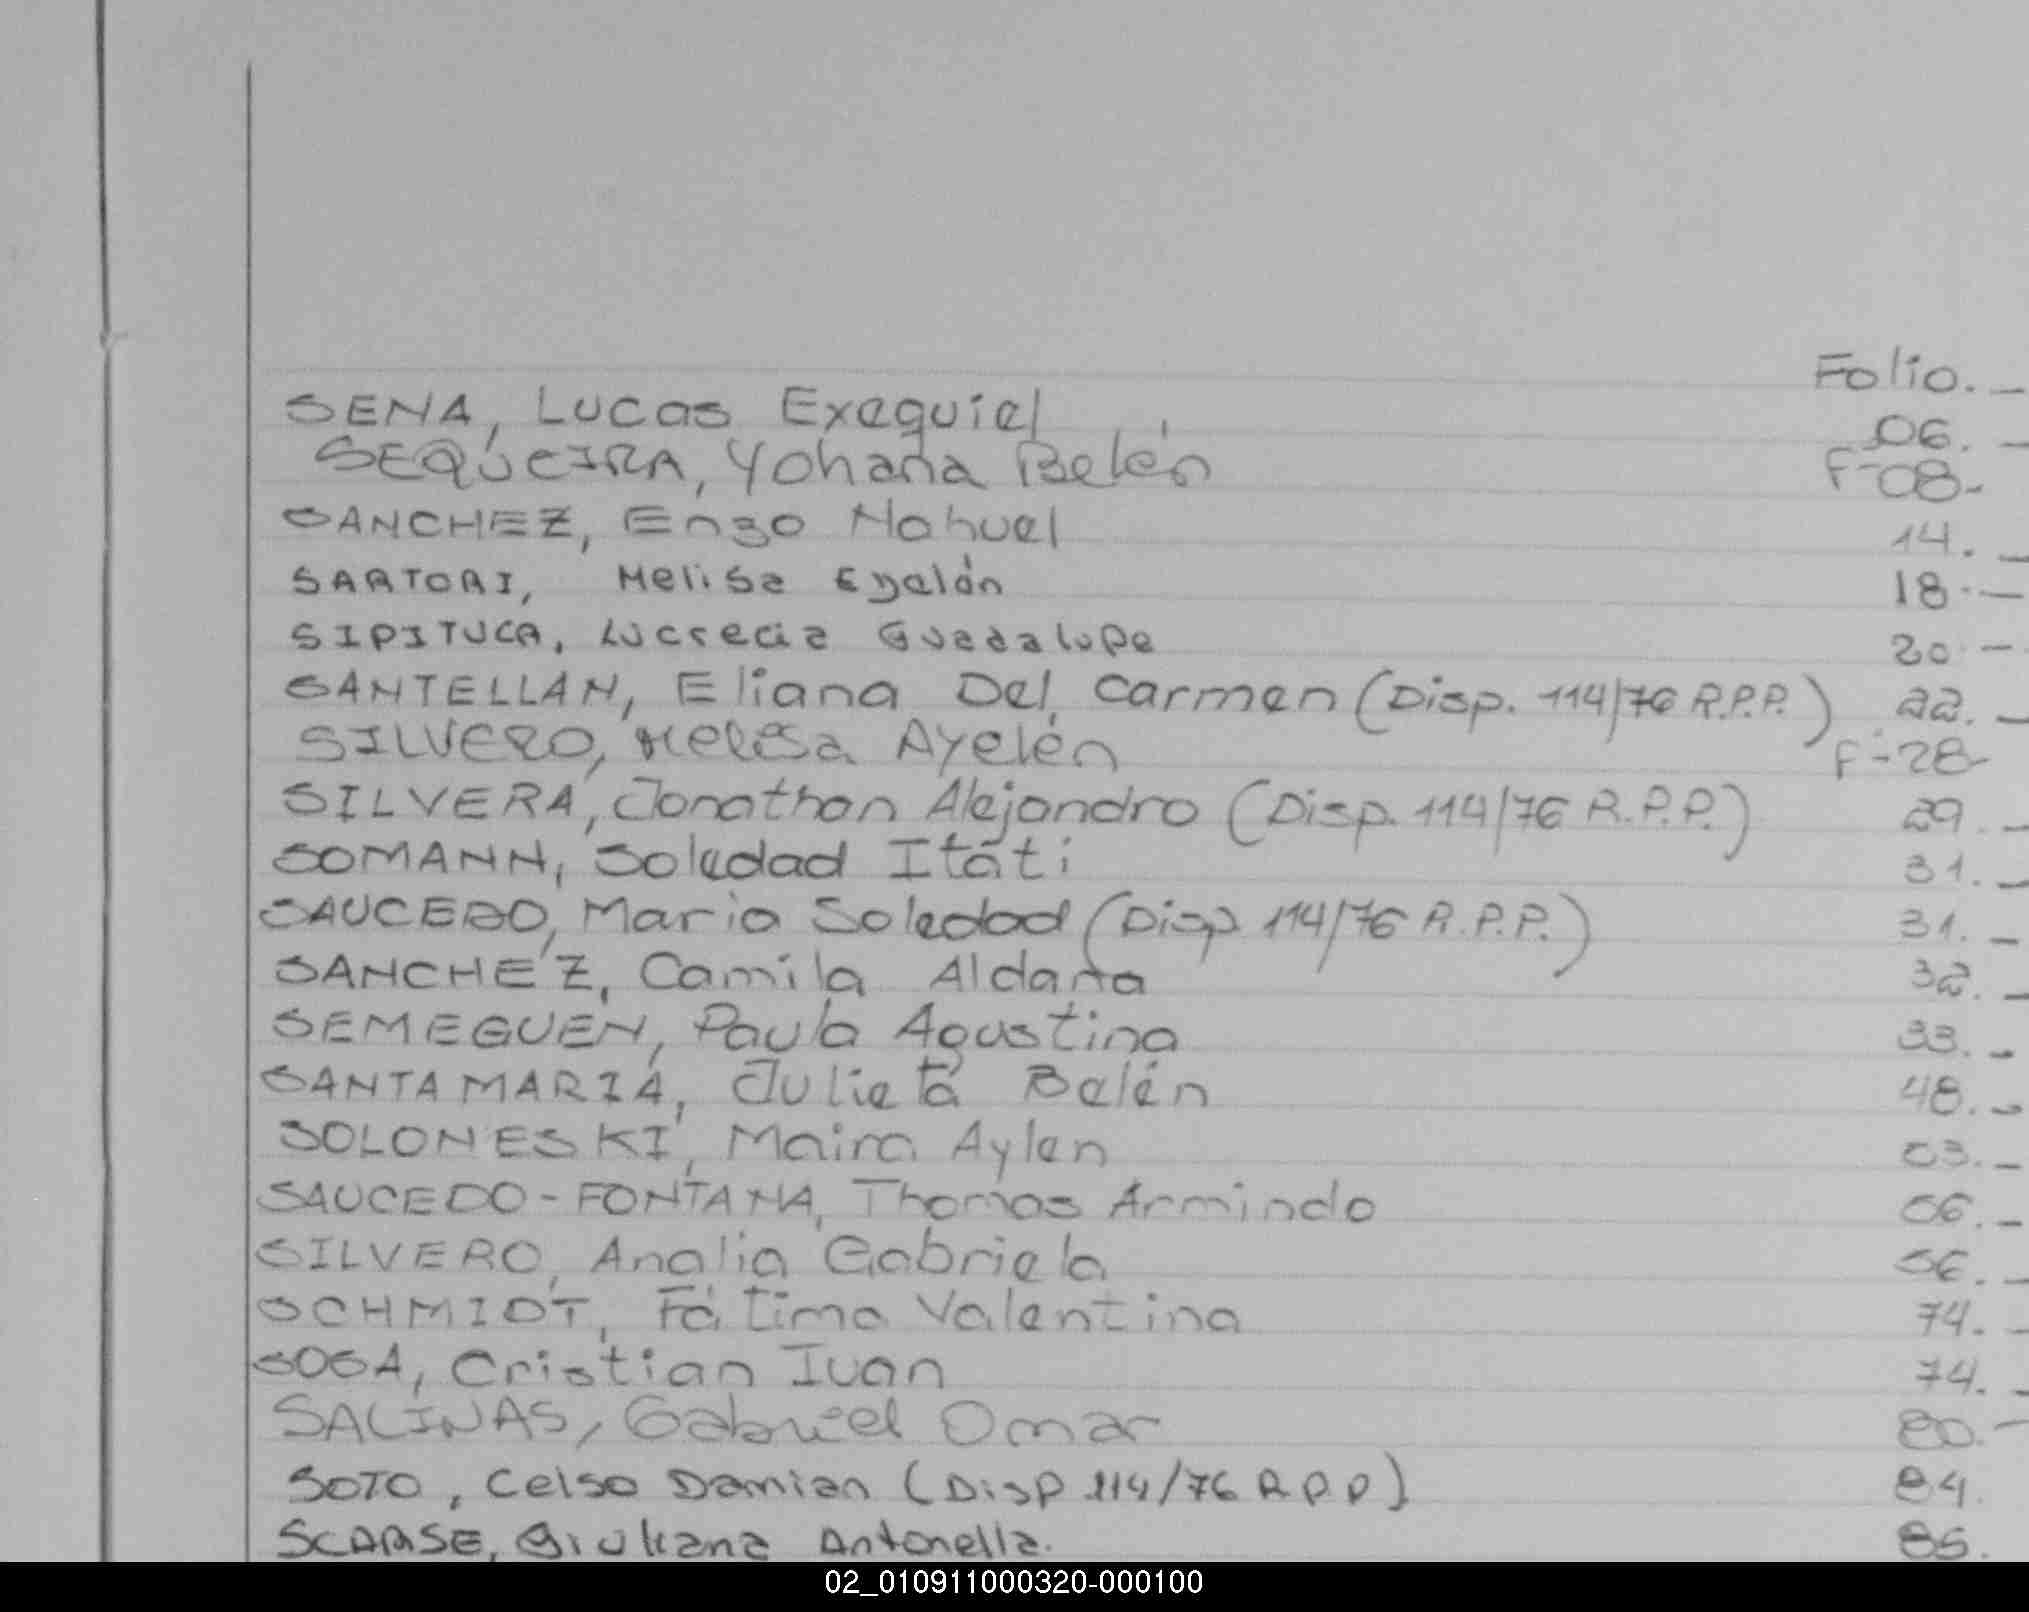 Folio. —
SENA, Lucas Exequiel 06. —
SEQUEIRA, Yohana Belén F-08-
SANCHEZ, Enzo Nahuel 14. —
SARTORI, Melisa Eyelén 18 —
SIPITUCA, Lucrecia Guadalupe 20 —
SANTELLAN, Eliana Del Carmen (Disp. 114/76 R.P.P.) 22. —
SILVERO, Melisa Ayelén F-28-
SILVERA, Jonathan Alejandro (Disp. 114/76 R.P.P.) 29. —
SOMANN, Soledad Itati 31. —
SAUCEDO, Maria Soledad (Disp 114/76 R.P.P.) 31. —
SANCHEZ, Camila Aldana 32. —
SEMEGUEN, Paula Agustina 33. —
SANTAMARIA, Julieta Belén 48. —
SOLONESKI, Maira Aylen 53. —
SAUCEDO-FONTANA, Thomas Armindo 56. —
SILVERO, Analia Gabriela 56. —
SCHMIDT, Fátima Valentina 74. —
SOSA, Cristian Ivan 74. —
SALINAS, Gabriel Omar 80. —
SOTO, Celso Damian (Disp 114/76 R P P) 84.
Giuliana Antonella.
02_010911000320-000100